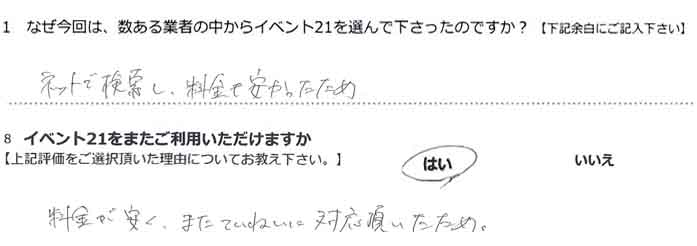 1 なぜ今回は、数ある業者の中からイベント21を選んで下さったのですか？【下記余白にご記入下さい】
ネットで検索し、料金も安かったため
8 イベント21をまたご利用いただけますか
【上記評価をご選択頂いた理由についてお教え下さい。】 はい いいえ
料金が安く、またていねいに対応頂いたため。